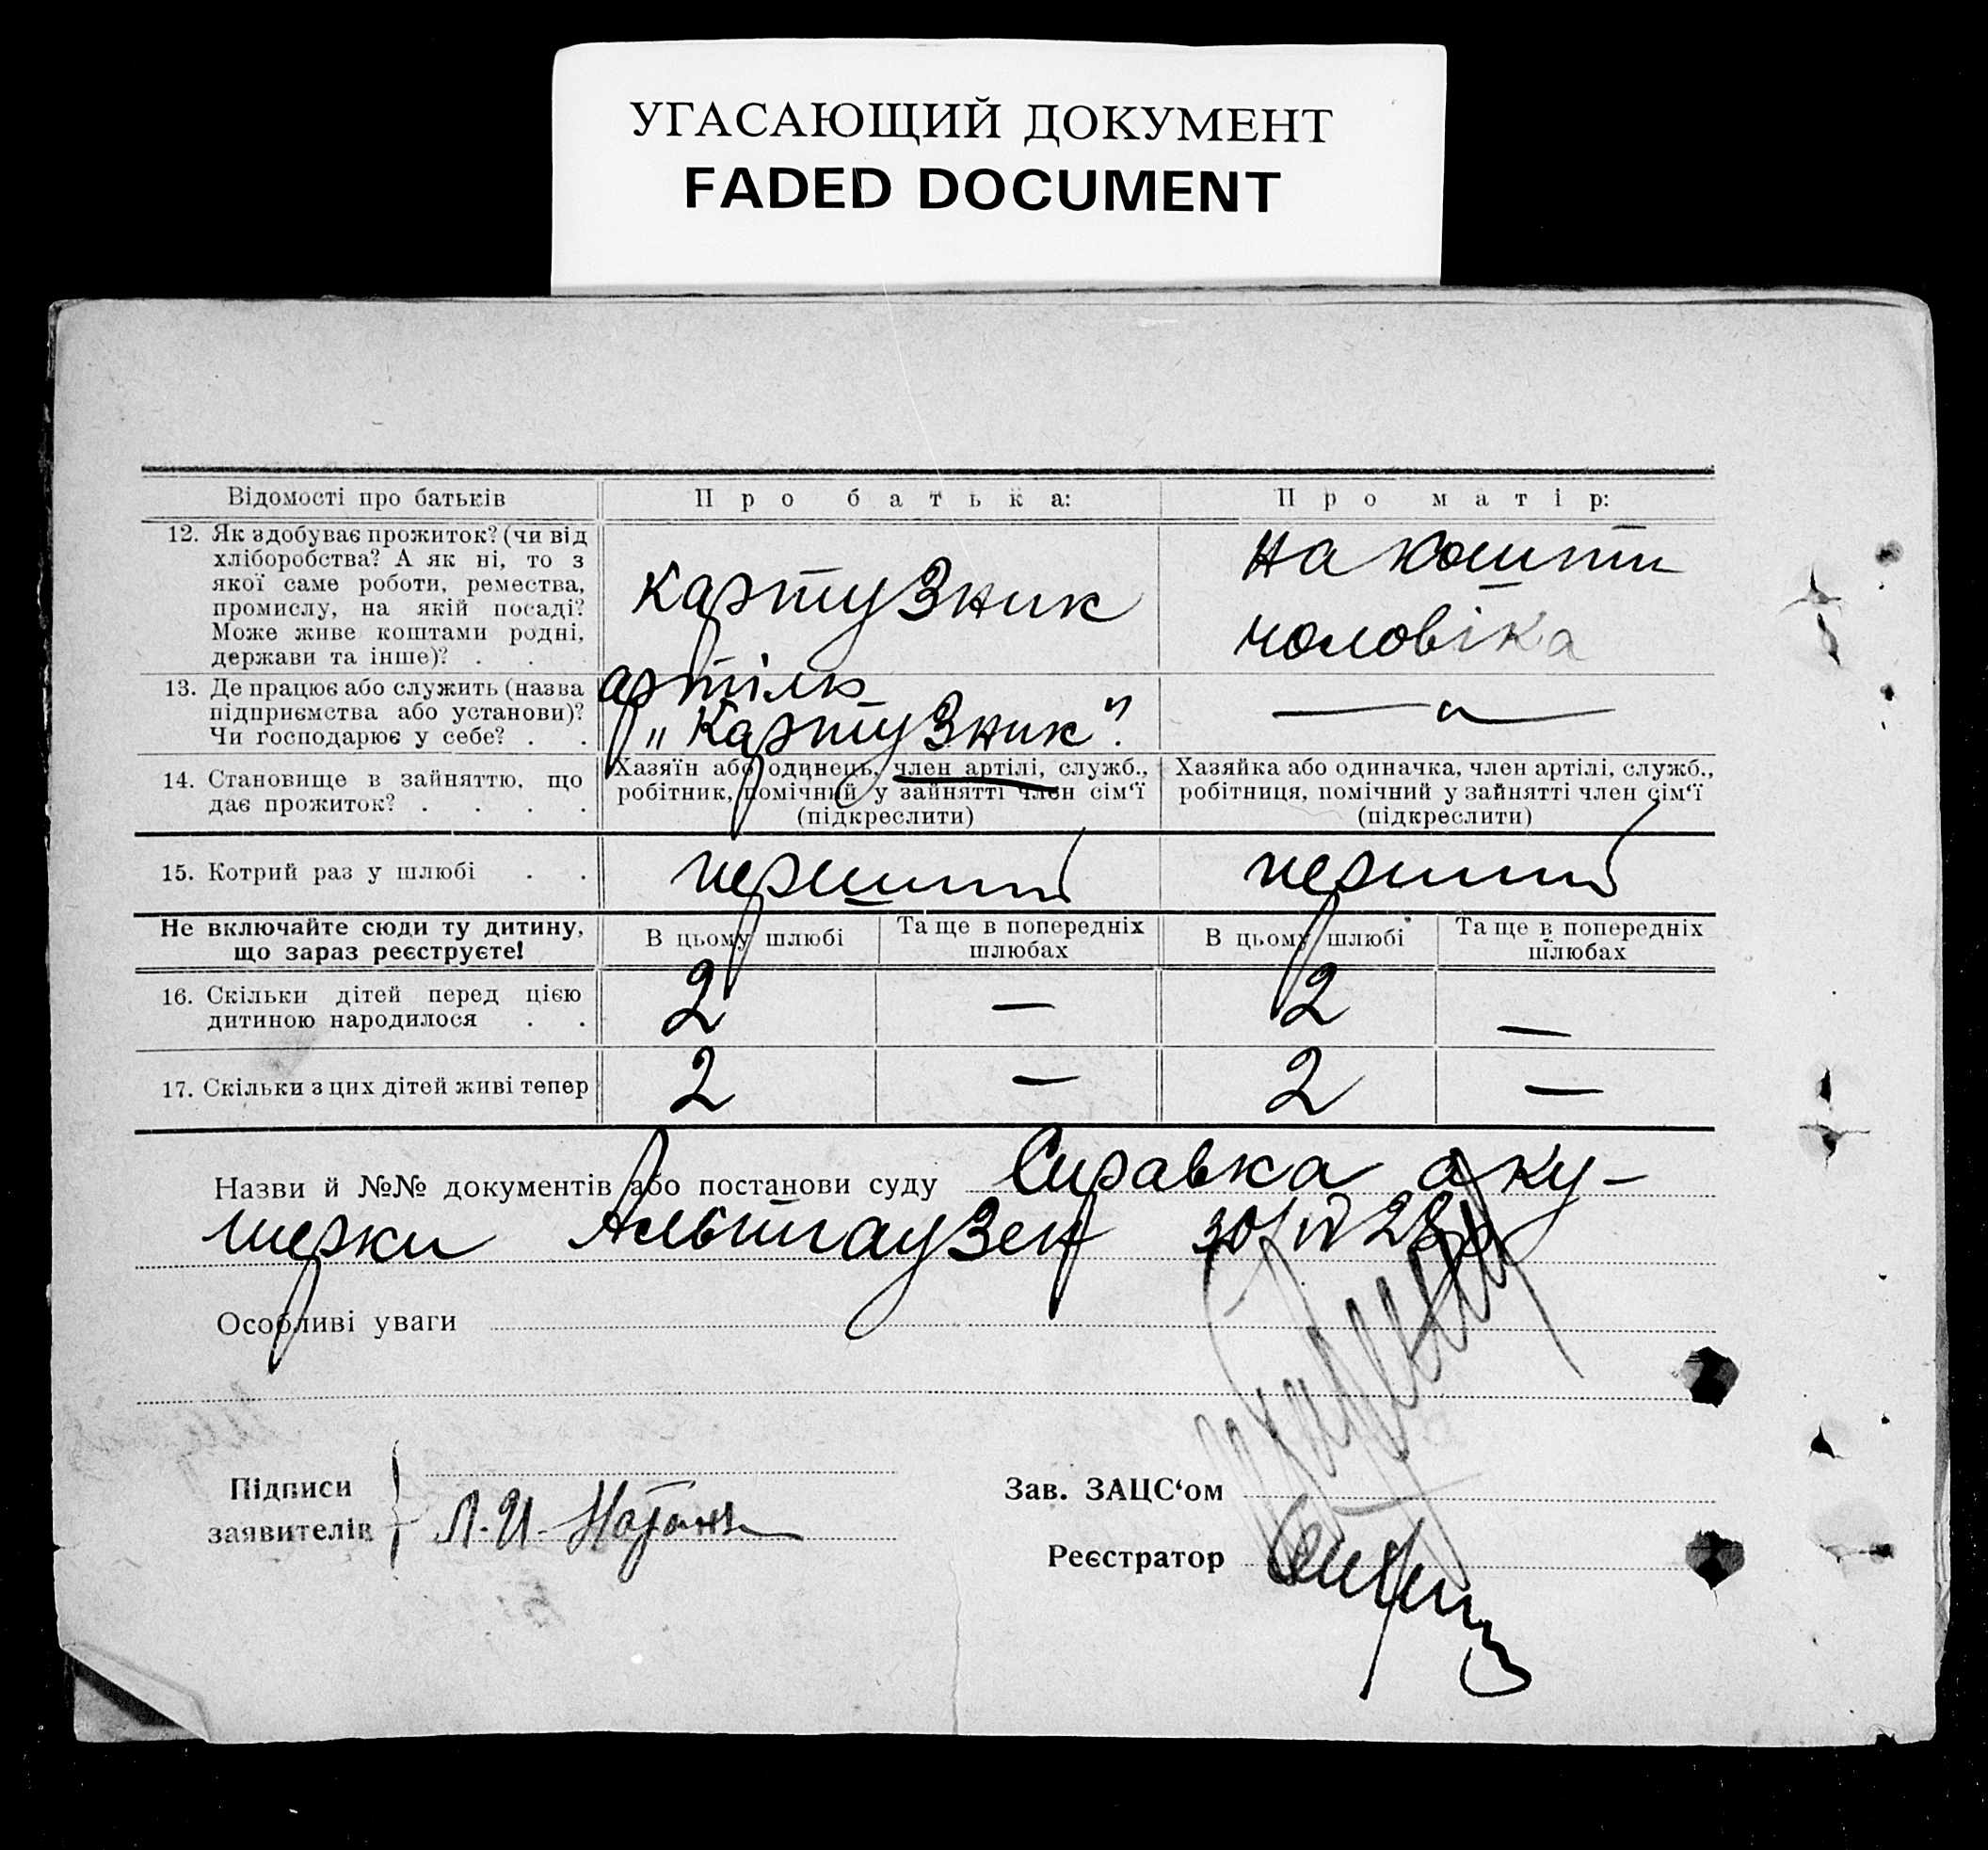 УГАСАЮЩИЙ ДОКУМЕНТ
FADED DOCUMENT
Відомості про батьків
Про батька:
Про матір:
12. Як здобуває прожиток? (чи від
хліборобства? А як ні, то з
якої саме роботи, ремества,
промислу, на якій посаді?
Може живе коштами родні,
держави та інше)? . .
картузник
на кошти
чоловіка
13. Де працює або служить (назва
підприємства або установи)?
Чи господарює у себе? . .
артіль
„Картузник".
14. Становище в зайняттю, що
дає прожиток? . . . .
Хазяїн або одинець, член артілі, служб.,
робітник, помічний у зайнятті член сім'ї
(підкреслити)
Хазяйка або одиначка, член артілі, служб.,
робітниця, помічний у зайнятті член сім'ї
(підкреслити)
15. Котрий раз у шлюбі . .
перший
перший
Не включайте сюди ту дитину,
що зараз реєструєте!
В цьому шлюбі
Та ще в попередніх
шлюбах
В цьому шлюбі
Та ще в попередніх
шлюбах
16. Скільки дітей перед цією
дитиною народилося . .
2
—
2
—
17. Скільки з цих дітей живі тепер
2
—
2
—
Назви й №№ документів або постанови суду Справка аку-
шерки Альтгаузен
Особливі уваги
Підписи
заявителів
Л. И.
Зав. ЗАЦС'ом
Реєстратор